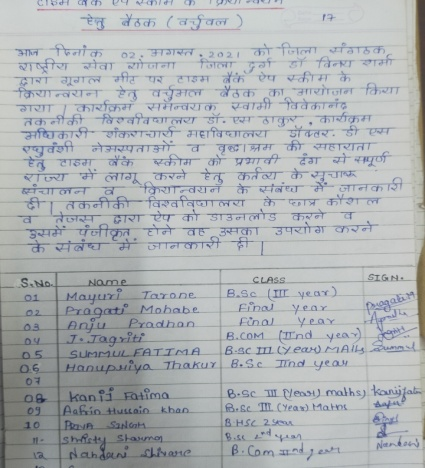 टाइम बैंक ऐप स्कीम के क्रियान्वयन
हेतु बैठक (वर्चुवल) 17
आज दिनांक 02. अगस्त. 2021 को जिला संगठक
राष्ट्रीय सेवा योजना जिला दुर्ग डॉ विनय शर्मा
द्वारा गूगल मीट पर टाइम बैंक ऐप स्कीम के
क्रियान्वयन हेतु वर्चुअल बैठक का आयोजन किया
गया। कार्यक्रम समन्वयक स्वामी विवेकानंद
तकनीकी विश्वविद्यालय डॉ. एस ठाकुर, कार्यक्रम
अधिकारी शंकराचार्य महाविद्यालय डॉक्टर. डी एस
रघुवंशी व वृद्धाश्रम की सहायता
हेतु टाइम बैंक स्कीम को प्रभावी ढंग से सम्पूर्ण
राज्य में लागू करने हेतु कर्तव्य के सुचारू
संचालन व क्रियान्वयन के संबंध में जानकारी
दी। तकनीकी विश्वविद्यालय के छात्र कौशल
व तेजस द्वारा ऐप को डाउनलोड करने व
उसमें पंजीकृत होने वह उसका उपयोग करने
के संबंध में जानकारी दी।
S.No. Name CLASS SIGN.
01 Mayuri Tarone B.Sc (III year)
02 Pragati Mohabe Final year Pragati
03 Anju Pradhan Final Year
04 J. Jagriti B.COM (IInd year)
05 SUMMUL FATIMA B.SC III (Year) MAths Summul
06 Hanupriya Thakur B.Sc IInd year
07
08 Kanij Fatima B.SC III (Year) maths) Kanij fatima
09 Ashrin Hussain khan B.Sc III (Year) Maths
10 SINGH BHSC 2 year
11. Shristy Sharma B.sc 2nd year
12 Nandani B.Com IInd year Nandani